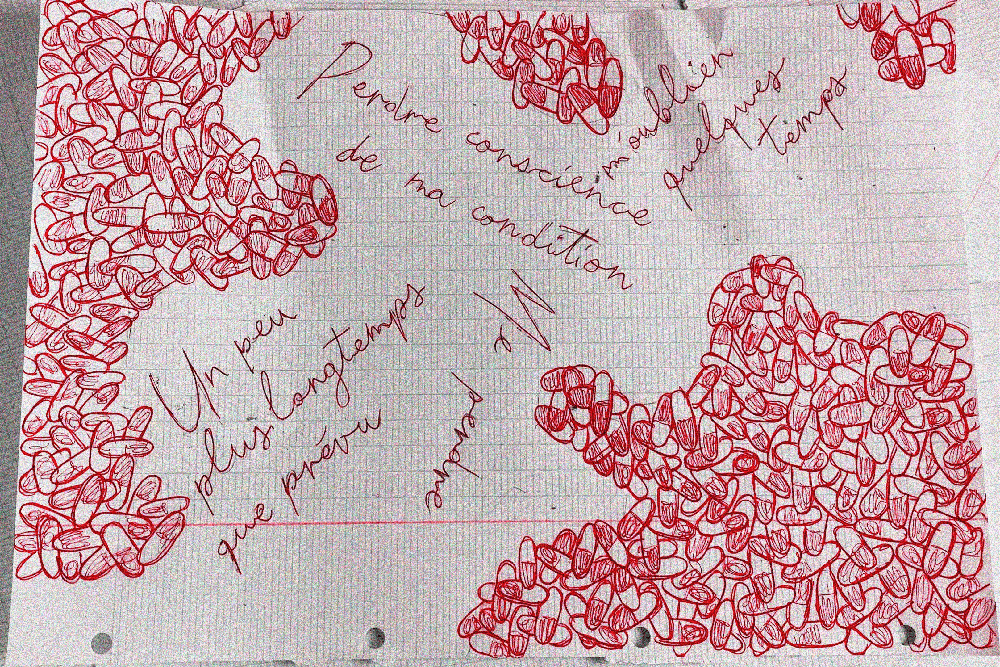 Perdre conscience
de ma condition
m'oublier
quelques
temps
Un peu
plus longtemps
que prévu
Me
perdre